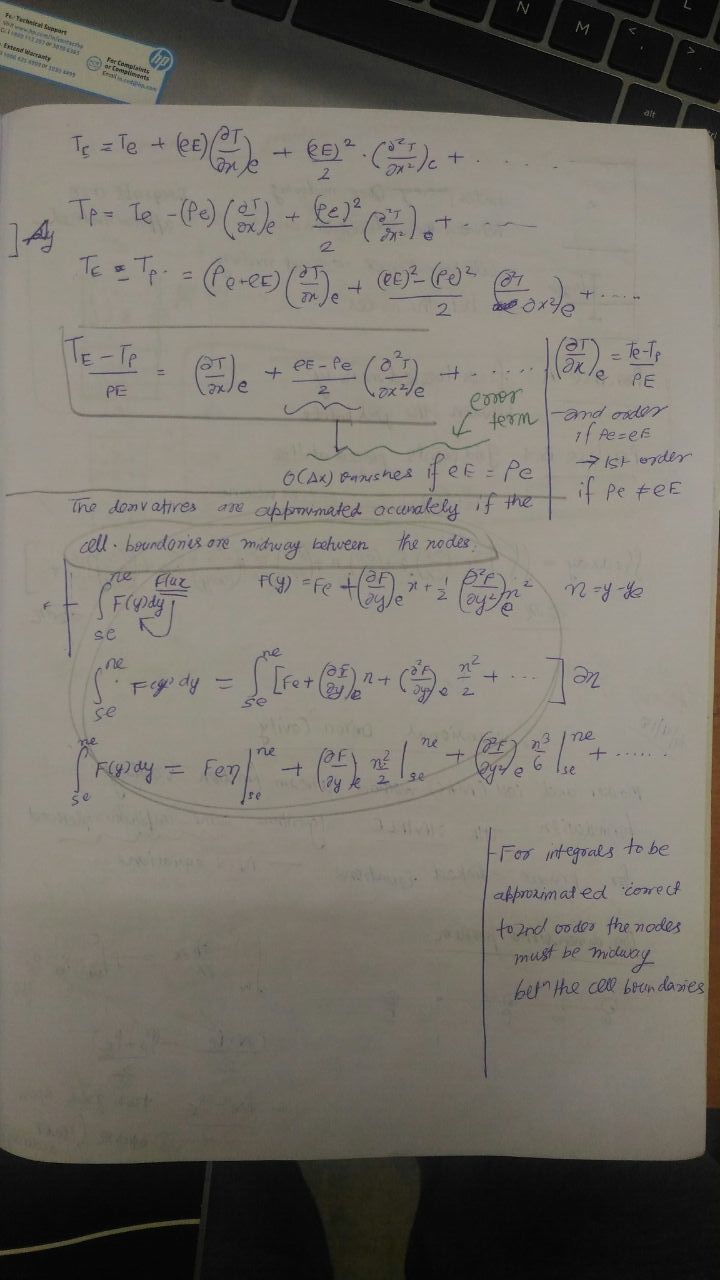 For Technical Support
Extend Warranty
For Complaints
or Compliments
hp
N
M
L
<
>
alt
T_E = Te + (eE)(∂T/∂x)e + (eE)²/2 · (∂²T/∂x²)e + . . . . .
Tp = Te - (Pe) (∂T/∂x)e + (Pe)²/2 (∂²T/∂x²)e + . . . .
] Δy
T_E - Tp = (Pe+eE) (∂T/∂x)e + (eE)² - (Pe)²/2 (∂²T/∂x²)e + . . . .
T_E - T_P/PE = (∂T/∂x)e + eE - Pe/2 (∂²T/∂x²)e + . . . . .
error
term
O(Δx) vanishes if eE = Pe
(∂T/∂x)e = Te-Tp/PE
- 2nd order
if Pe = eE
→ 1st order
if Pe ≠ eE
The derivatives are approximated accurately if the
cell boundaries are midway between the nodes.
Flux
∫_se^ne F(y)dy
F(y) = Fe + (∂F/∂y)e n + 1/2 (∂²F/∂y²)e n²
n = y - ye
∫_se^ne F(y) dy = ∫_se^ne [Fe + (∂F/∂y)e n + (∂²F/∂y²)e n²/2 + ...] ∂n
∫_se^ne F(y)dy = Fe n|_se^ne + (∂F/∂y)e n²/2 |_se^ne + (∂²F/∂y²)e n³/6 |_se^ne + ......
- For integrals to be
approximated correct
to 2nd order the nodes
must be midway
betⁿ the cell boundaries